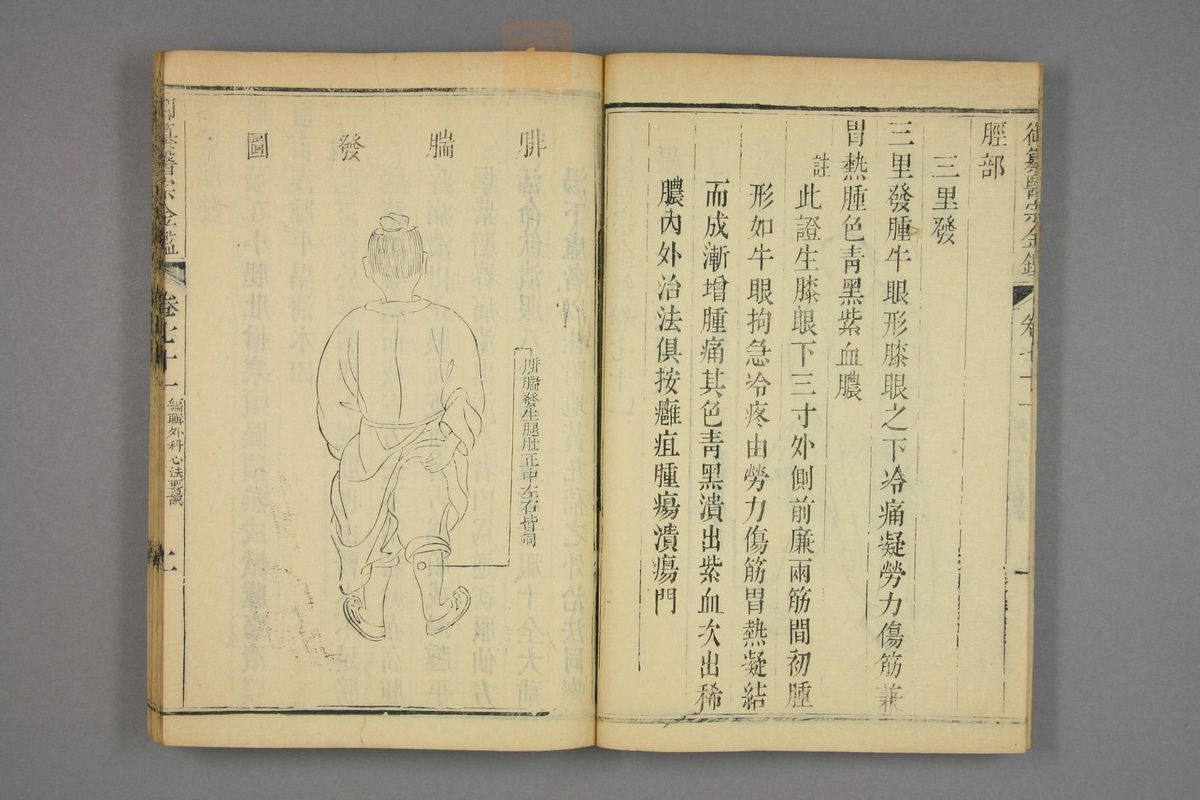 御纂醫宗金鑑 卷七十一
脛部
三里發
三里發腫牛眼形膝眼之下冷痛凝勞力傷筋兼
胃熱腫色青黑紫血膿
註 此證生膝眼下三寸外側前廉兩筋間初腫
形如牛眼拘急冷疼由勞力傷筋胃熱凝結
而成漸增腫痛其色青黑潰出紫血次出稀
膿內外治法俱按癰疽腫瘍潰瘍門
腓腨發圖
腓腨發生腿肚正中左右皆同
御纂醫宗金鑑 卷七十一 編輯外科心法要訣